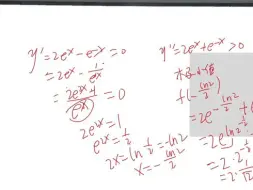 y'=2eˣ-e⁻ˣ=0
=2eˣ-1/eˣ
=(2e²ˣ-1)/eˣ=0
2e²ˣ=1
e²ˣ=1/2
2x=ln 1/2=-ln2
x=-ln2/2
y''=2eˣ+e⁻ˣ>0
f(-ln2/2)
=2e^(-ln2/2)+
=2e^(ln2^(-1/2))
=2·2^(-1/2)
=2·1/√2